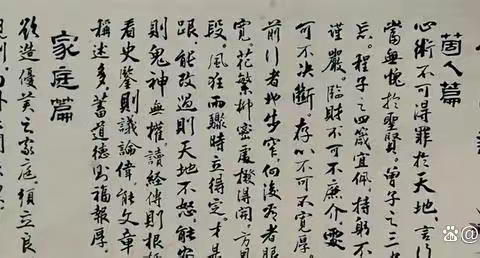 箇人篇
心術不可得罪於天地，言行
當無愧於聖賢。曾子之三
忘。程子之四箴宜佩，持躬不
謹嚴。臨財不可不廉介，處
可不決斷。存心不可不寬厚。
前行者地步窄，向後看者眼
寬。花繁柳密處撥得開，方見
段。風狂雨驟時立得定，才是
跟。能改過則天地不怒，能安
則鬼神無權。讀經傳則根柢
看史鑒則議論偉，能文章
稱述多，蓄道德則福報厚。
家庭篇
欲造優美之家庭，須立良